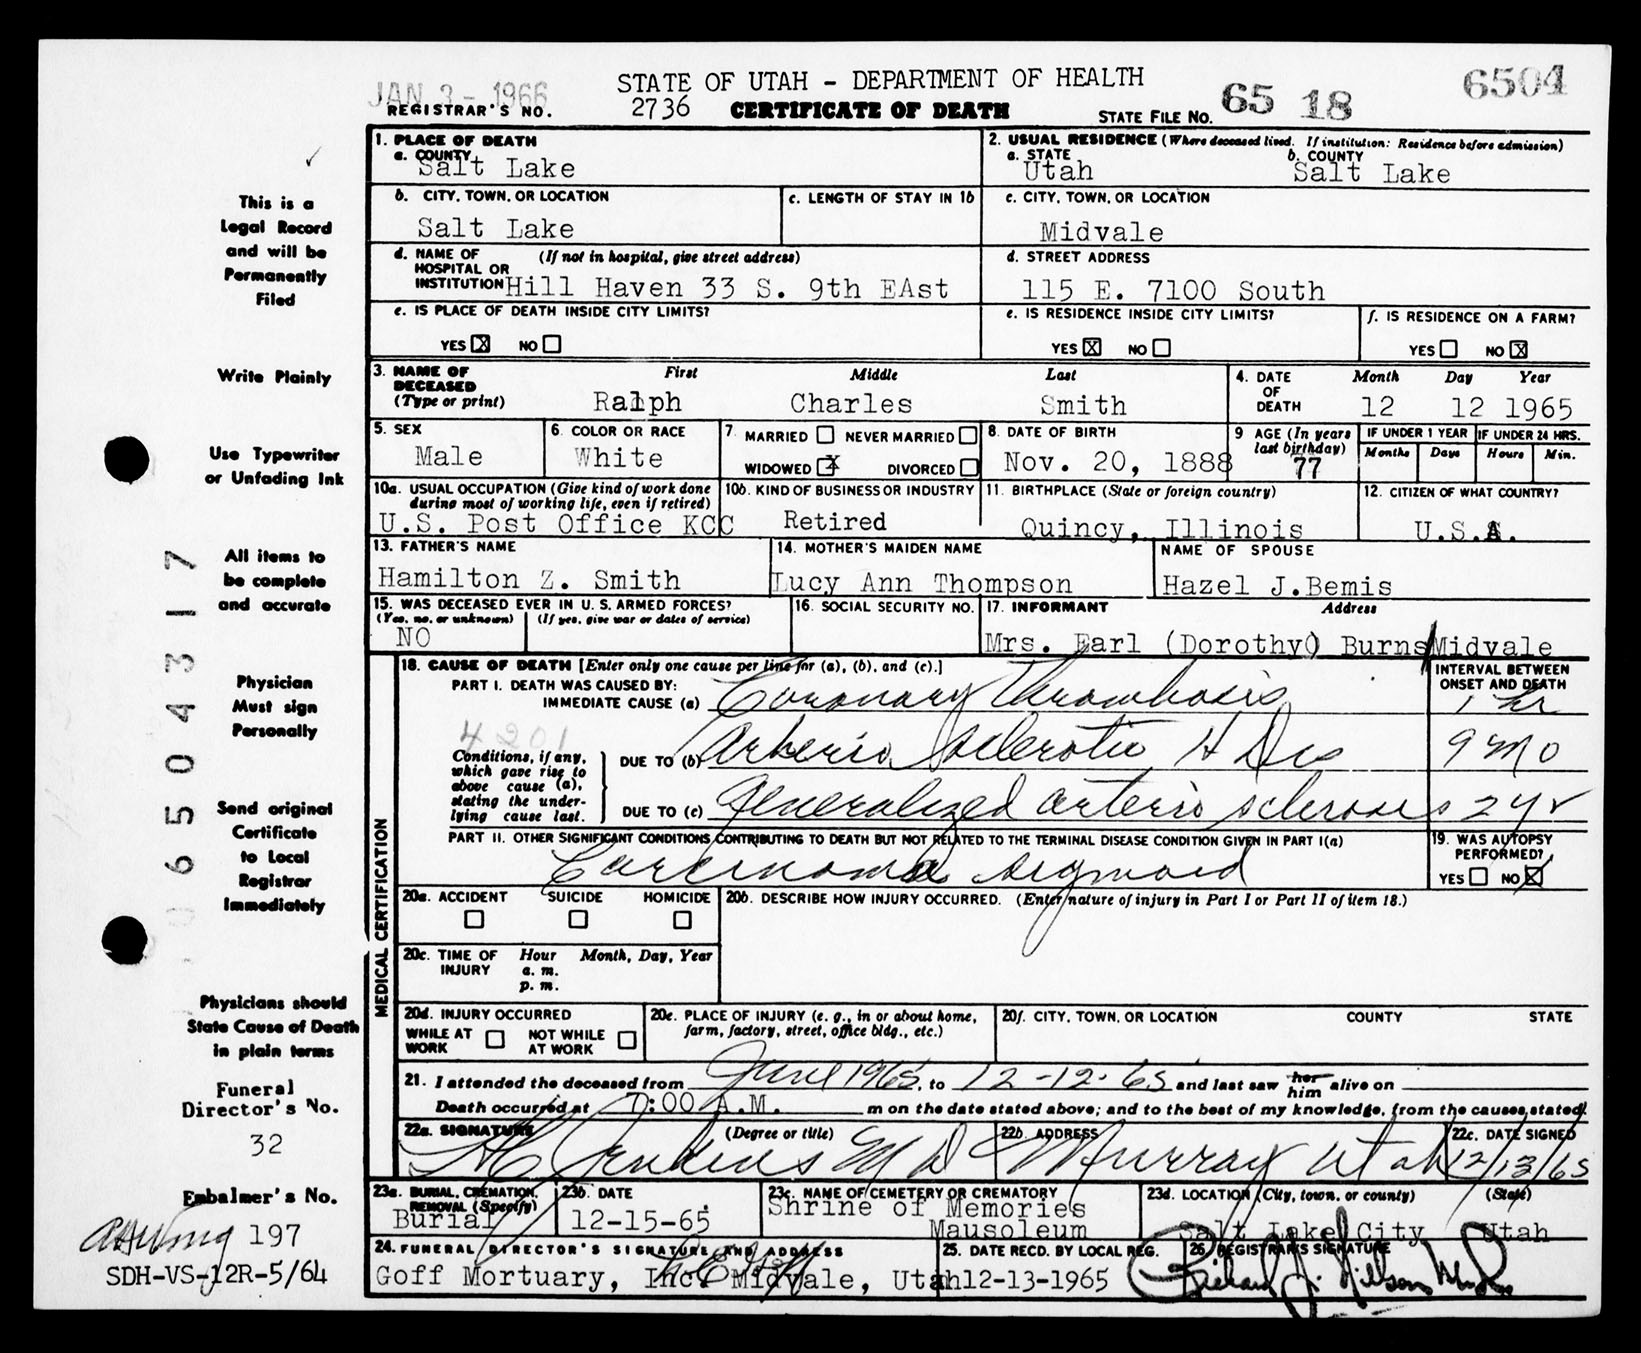 JAN 3 - 1966
STATE OF UTAH - DEPARTMENT OF HEALTH
6504
REGISTRAR'S NO. 2736 CERTIFICATE OF DEATH STATE FILE NO. 65 18
1. PLACE OF DEATH
a. COUNTY
Salt Lake
2. USUAL RESIDENCE (Where deceased lived. If institution: Residence before admission)
a. STATE b. COUNTY
Utah Salt Lake
b. CITY, TOWN, OR LOCATION c. LENGTH OF STAY IN 1b c. CITY, TOWN, OR LOCATION
Salt Lake Midvale
d. NAME OF HOSPITAL OR INSTITUTION (If not in hospital, give street address) d. STREET ADDRESS
Hill Haven 33 S. 9th EAst 115 E. 7100 South
e. IS PLACE OF DEATH INSIDE CITY LIMITS? e. IS RESIDENCE INSIDE CITY LIMITS? f. IS RESIDENCE ON A FARM?
YES X NO YES X NO YES NO X
3. NAME OF DECEASED (Type or print) First Middle Last 4. DATE OF DEATH Month Day Year
Ralph Charles Smith 12 12 1965
5. SEX 6. COLOR OR RACE 7. MARRIED NEVER MARRIED 8. DATE OF BIRTH 9 AGE (In years last birthday) IF UNDER 1 YEAR IF UNDER 24 HRS.
Months Days Hours Min.
Male White WIDOWED X DIVORCED Nov. 20, 1888 77
10a. USUAL OCCUPATION (Give kind of work done during most of working life, even if retired) 10b. KIND OF BUSINESS OR INDUSTRY 11. BIRTHPLACE (State or foreign country) 12. CITIZEN OF WHAT COUNTRY?
U.S. Post Office KCC Retired Quincy, Illinois U.S.A.
13. FATHER'S NAME 14. MOTHER'S MAIDEN NAME NAME OF SPOUSE
Hamilton Z. Smith Lucy Ann Thompson Hazel J.Bemis
15. WAS DECEASED EVER IN U.S. ARMED FORCES? 16. SOCIAL SECURITY NO. 17. INFORMANT Address
(Yes, no, or unknown) (If yes, give war or dates of service)
NO Mrs. Earl (Dorothy) Burns/Midvale
MEDICAL CERTIFICATION
18. CAUSE OF DEATH [Enter only one cause per line for (a), (b), and (c).] INTERVAL BETWEEN ONSET AND DEATH
PART I. DEATH WAS CAUSED BY:
IMMEDIATE CAUSE (a) Coronary Thrombosis 1 hr
4201
Conditions, if any, which gave rise to above cause (a), stating the underlying cause last.
DUE TO (b) Arterio Sclerotic H Dis 9 mo
DUE TO (c) Generalized arterio sclerosis 2 yr
PART II. OTHER SIGNIFICANT CONDITIONS CONTRIBUTING TO DEATH BUT NOT RELATED TO THE TERMINAL DISEASE CONDITION GIVEN IN PART I(a) 19. WAS AUTOPSY PERFORMED?
Carcinoma sigmoid YES NO X
20a. ACCIDENT SUICIDE HOMICIDE 20b. DESCRIBE HOW INJURY OCCURRED. (Enter nature of injury in Part I or Part II of item 18.)
20c. TIME OF INJURY Hour Month, Day, Year
a. m.
p. m.
20d. INJURY OCCURRED 20e. PLACE OF INJURY (e. g., in or about home, farm, factory, street, office bldg., etc.) 20f. CITY, TOWN, OR LOCATION COUNTY STATE
WHILE AT WORK NOT WHILE AT WORK
21. I attended the deceased from June 1965, to 12-12-65 and last saw her him alive on
Death occurred at 7:00 A.M. m on the date stated above; and to the best of my knowledge, from the causes stated.
22a. SIGNATURE (Degree or title) 22b. ADDRESS 22c. DATE SIGNED
Jenkins MD Murray Utah 12/13/65
23a. BURIAL, CREMATION, REMOVAL (Specify) 23b. DATE 23c. NAME OF CEMETERY OR CREMATORY 23d. LOCATION (City, town, or county) (State)
Burial 12-15-65 Shrine of Memories Mausoleum Salt Lake City Utah
24. FUNERAL DIRECTOR'S SIGNATURE AND ADDRESS 25. DATE RECD. BY LOCAL REG. 26. REGISTRAR'S SIGNATURE
Goff Mortuary, Inc. Midvale, Utah 12-13-1965 Richard
This is a
Legal Record
and will be
Permanently
Filed
Write Plainly
Use Typewriter
or Unfading Ink
All items to
be complete
and accurate
Physician
Must sign
Personally
Send original
Certificate
to Local
Registrar
Immediately
Physicians should
State Cause of Death
in plain terms
Funeral
Director's No.
32
Embalmer's No.
197
SDH-VS-12R-5/64
06504317